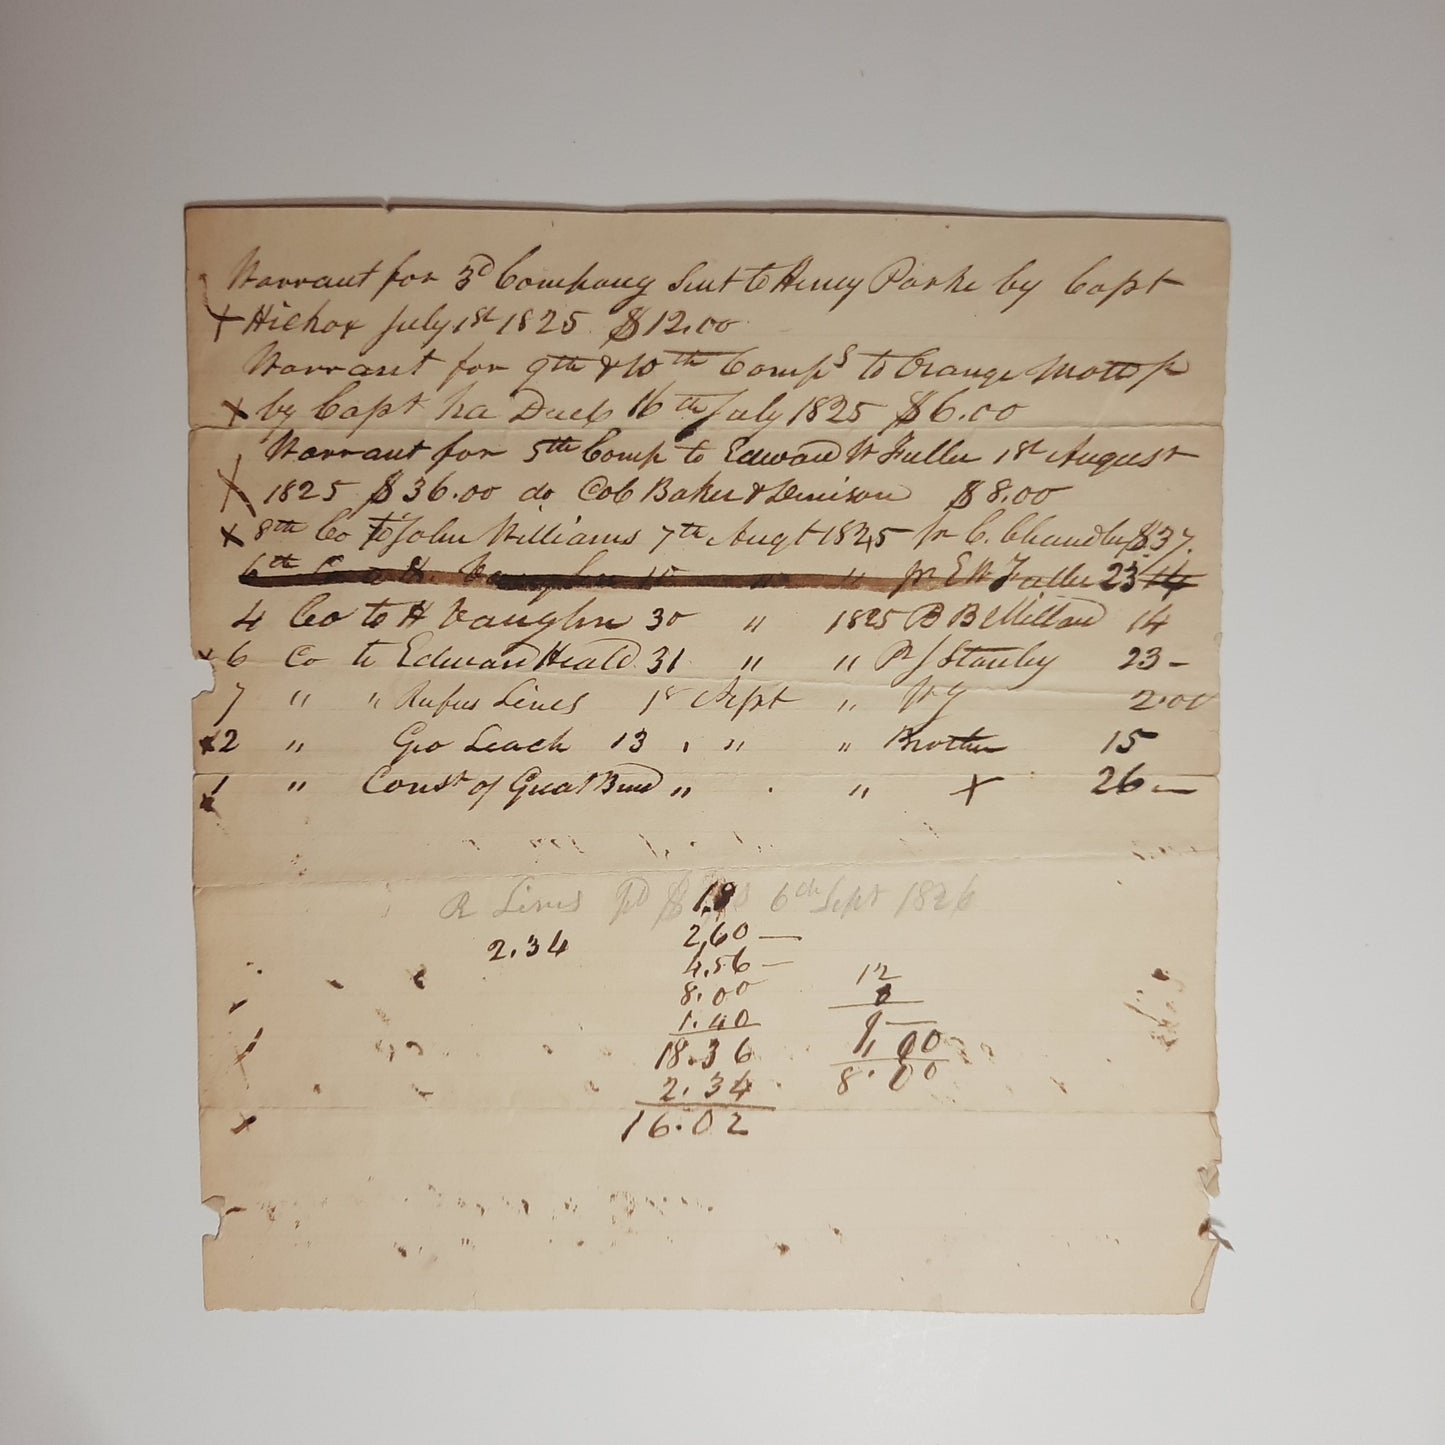 Warrant for 3d Company Sent to Henry Parke by Capt
x Hickox July 1st 1825 $12.00
Warrant for 9th & 10th Comps to Orange Mott
x by Capt Ira Duel 16th July 1825 $6.00
Warrant for 5th Comp to Edward W Fuller 1st August
x 1825 $36.00 do Col Baker & Denison $8.00
x 8th Co to John Williams 7th Augt 1825 pr C. Chandler $37.
6th Co H. Vaughn 15 " " pr E W Fuller 23
4 Co to H Vaughn 30 " 1825 B B 14
x 6 Co to Edward Heald 31 " " P J Stanley 23 —
7 " " Rufus Lines 1st Sept " 2.00
x 2 " Geo Leach 13 " " Brother 15
x 1 " Const of Great Bend " . " x 26 —
R Lines pd $ 6th Sept 1826
1.8
2.34 2,60 —
4,56 —
8.00
1.40
18.36
2.34
16.02
12
9 —
1,00
8.00